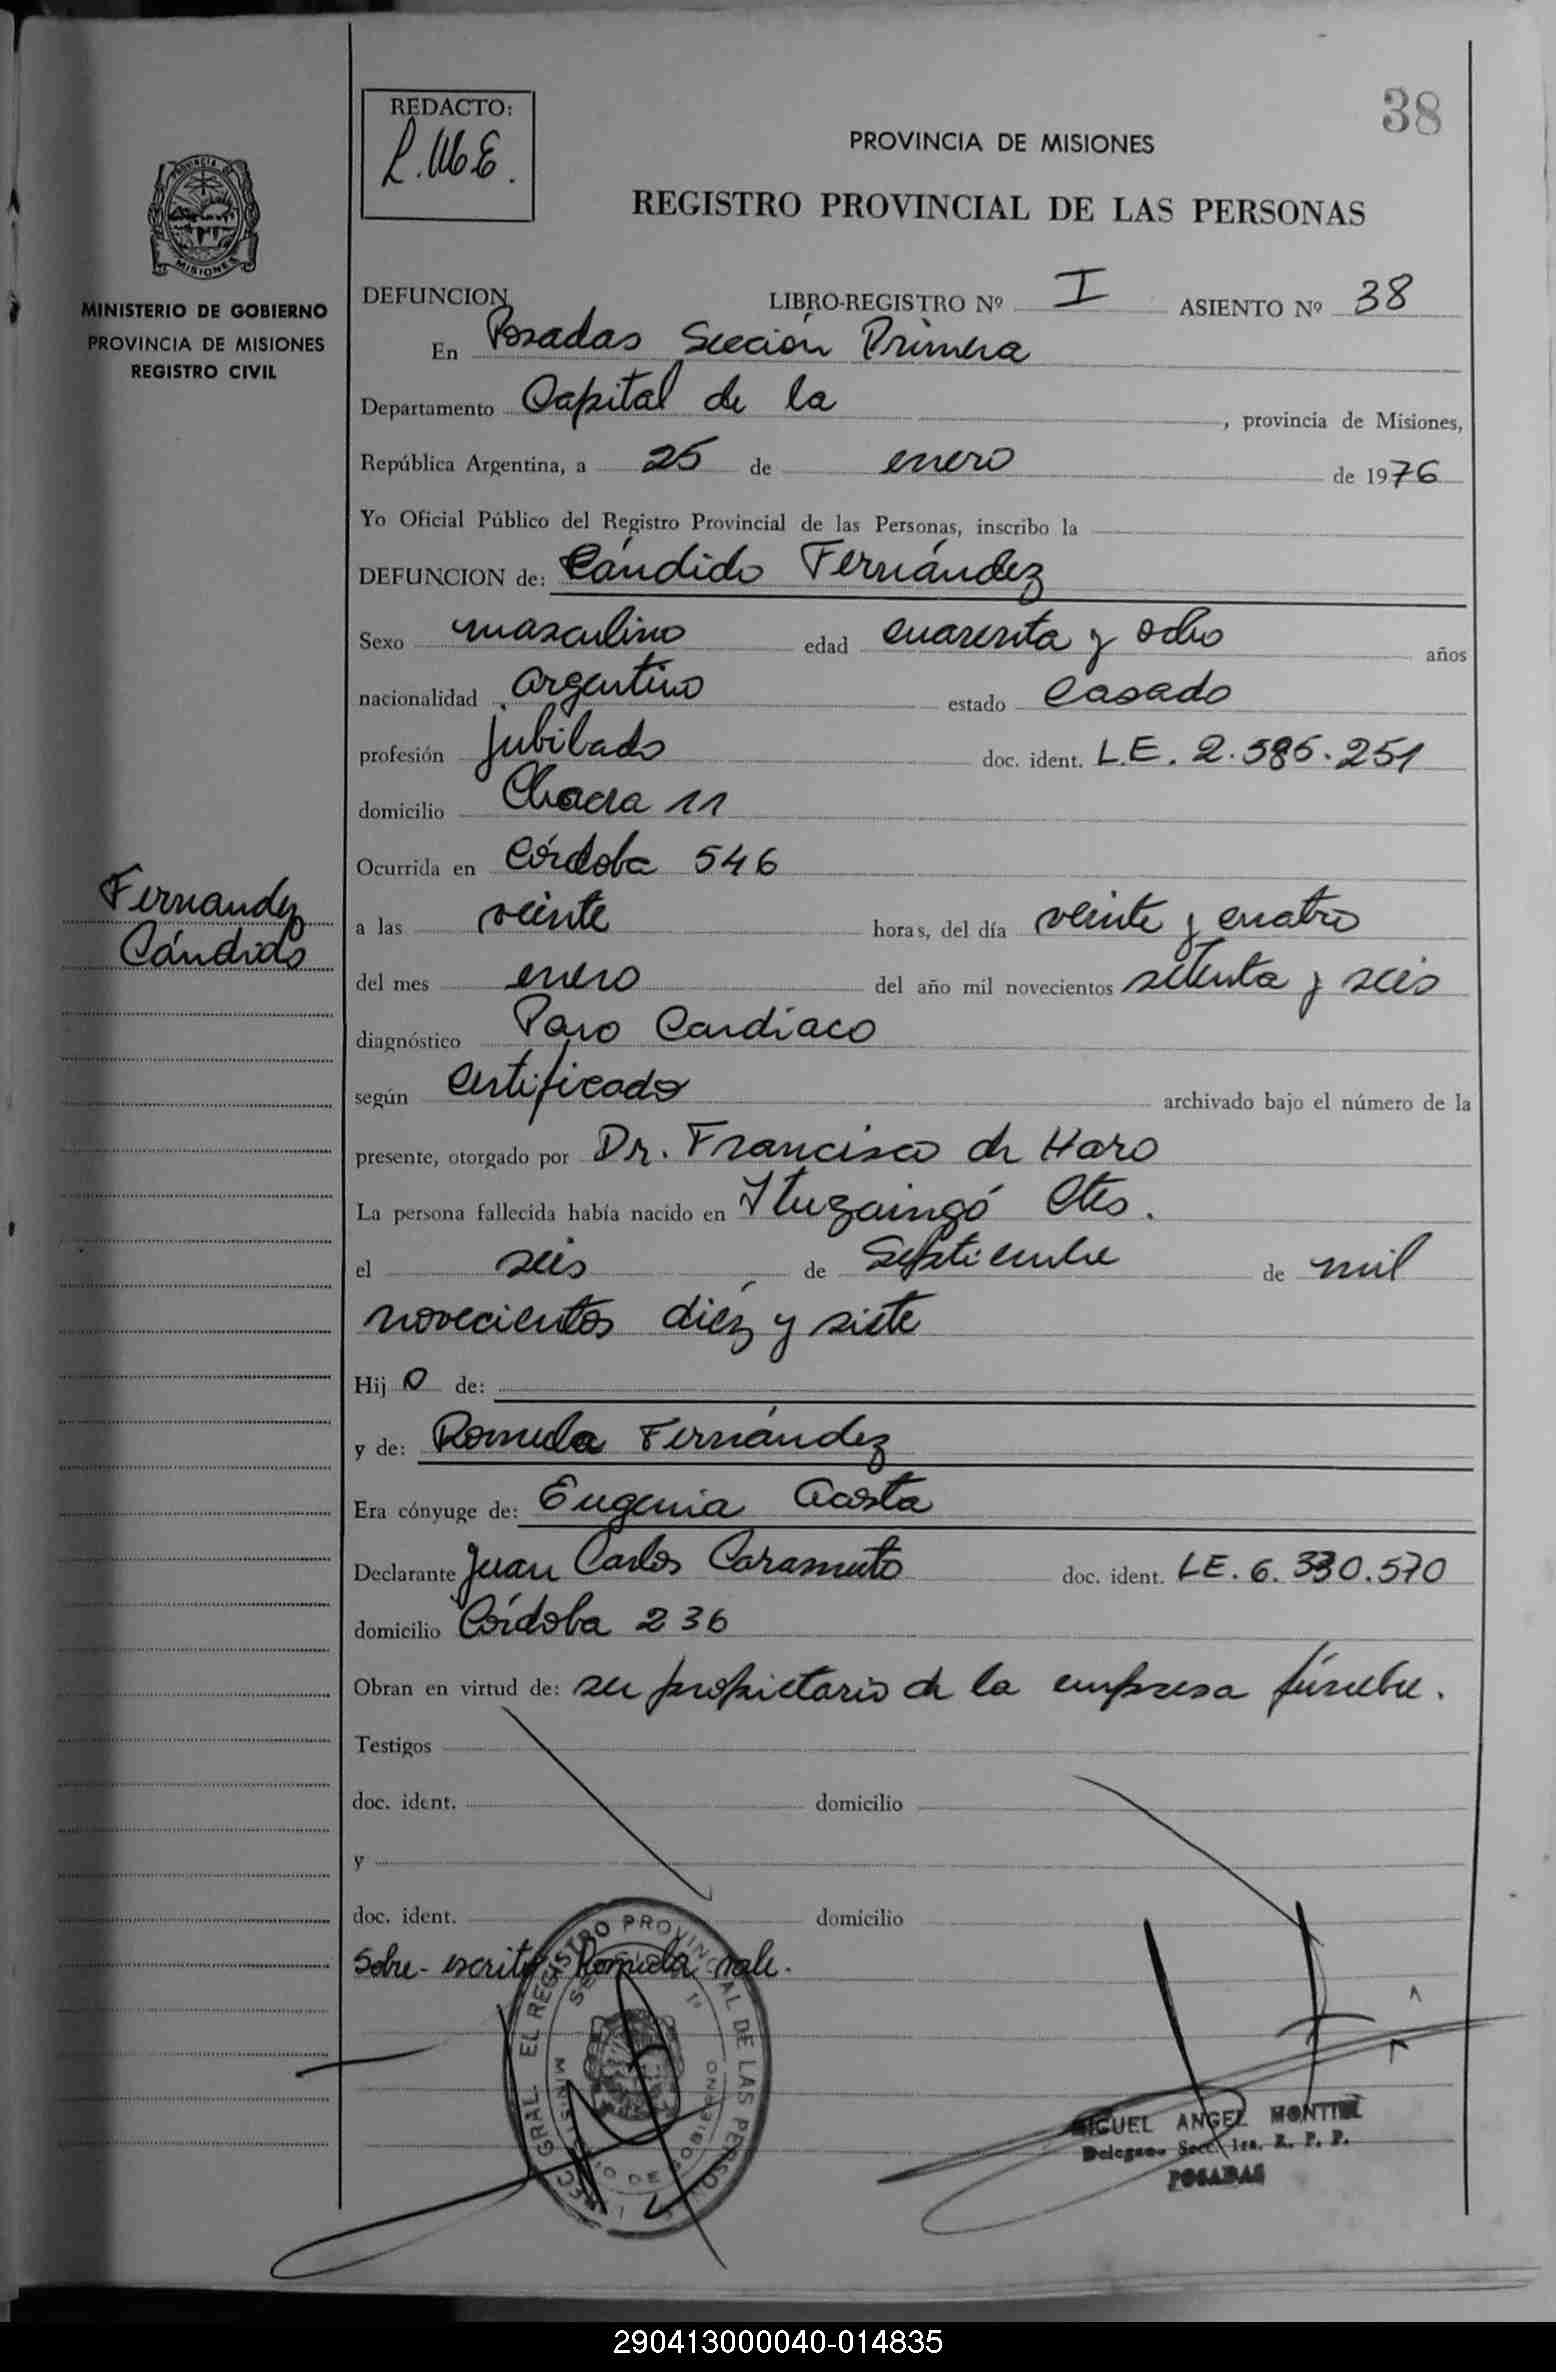 REDACTO:
38
PROVINCIA DE MISIONES
REGISTRO PROVINCIAL DE LAS PERSONAS
PROVINCIA DE
MISIONES
MINISTERIO DE GOBIERNO
PROVINCIA DE MISIONES
REGISTRO CIVIL
DEFUNCION LIBRO-REGISTRO Nº I ASIENTO Nº 38
En Posadas Sección Primera
Departamento Capital de la , provincia de Misiones,
República Argentina, a 25 de enero de 1976
Yo Oficial Público del Registro Provincial de las Personas, inscribo la
DEFUNCION de: Cándido Fernández
Sexo masculino edad cuarenta y ocho años
nacionalidad argentino estado Casado
profesión jubilado doc. ident. L.E. 2.586.251
domicilio Chacra 11
Ocurrida en Córdoba 546
Fernandez
Cándido
a las veinte horas, del día veinte y cuatro
del mes enero del año mil novecientos setenta y seis
diagnóstico Paro Cardíaco
según Certificado archivado bajo el número de la
presente, otorgado por Dr. Francisco de Haro
La persona fallecida había nacido en Ituzaingó Ctes.
el seis de Septiembre de mil
novecientos diéz y siete
Hij o de:
y de: Romula Fernández
Era cónyuge de: Eugenia Acosta
Declarante Juan Carlos Caramuto doc. ident. LE. 6.330.570
domicilio Córdoba 236
Obran en virtud de: ser propietario de la empresa fúnebre.
Testigos
doc. ident. domicilio
y
doc. ident. domicilio
Sobre-escrito Romula vale.
EL REGISTRO PROVINCIAL DE LAS PERSONAS
SECCION 1ª
MINISTERIO DE GOBIERNO
MIGUEL ANGEL MONTIEL
Delegado Secc. 1ra. R. P. P.
POSADAS
290413000040-014835